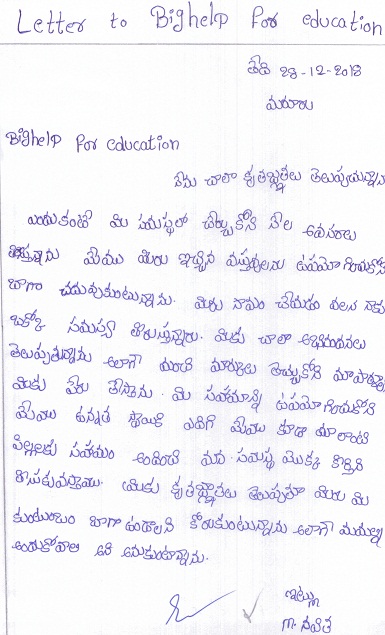 Letter to Bighelp For education
తేది 28-12-2018
మరూరు
Bighelp For education
నేను చాలా కృతజ్ఞతలు తెలుపుతున్నాను
ఎందుకంటే మి సమస్థలో చేర్చుకోని నేల అవసరాలు
తిరుస్తున్నారు మేము మిరు ఇచ్చిన వస్తువులను ఉపమోగించుకోని
బాగా చదువుకుంటున్నాను. మిరు సాహం చేయడం వలన నాకు
ఒక్కో సమస్యా తిరుస్తున్నారు. మికు చాలా అభినందనలు
తెలుపుతున్నాను అలాగే మంచి మార్కులు తెచ్చుకోని మా పాఠశాల
మికు పేరు తెస్తాను. మి సహయాన్ని ఉపమోగించుకోని
మేము ఉన్నత స్థాయికి ఎదిగి మేము కూడా మాలాంటి
పిల్లలకు సహయం అందించి మన సమస్థ యొక్క కిర్తిని
తిసుకువస్తాము. మికు కృతజ్ఞాతలు తెలుపుతూ మిరు మి
కుటుంబం బాగా ఉండాలని కోరుకుంటున్నాను అలాగే మమ్మల్ని
అందుకోవాలి అని అనుకుంటున్నాను.
ఇట్లు
M. నవిత